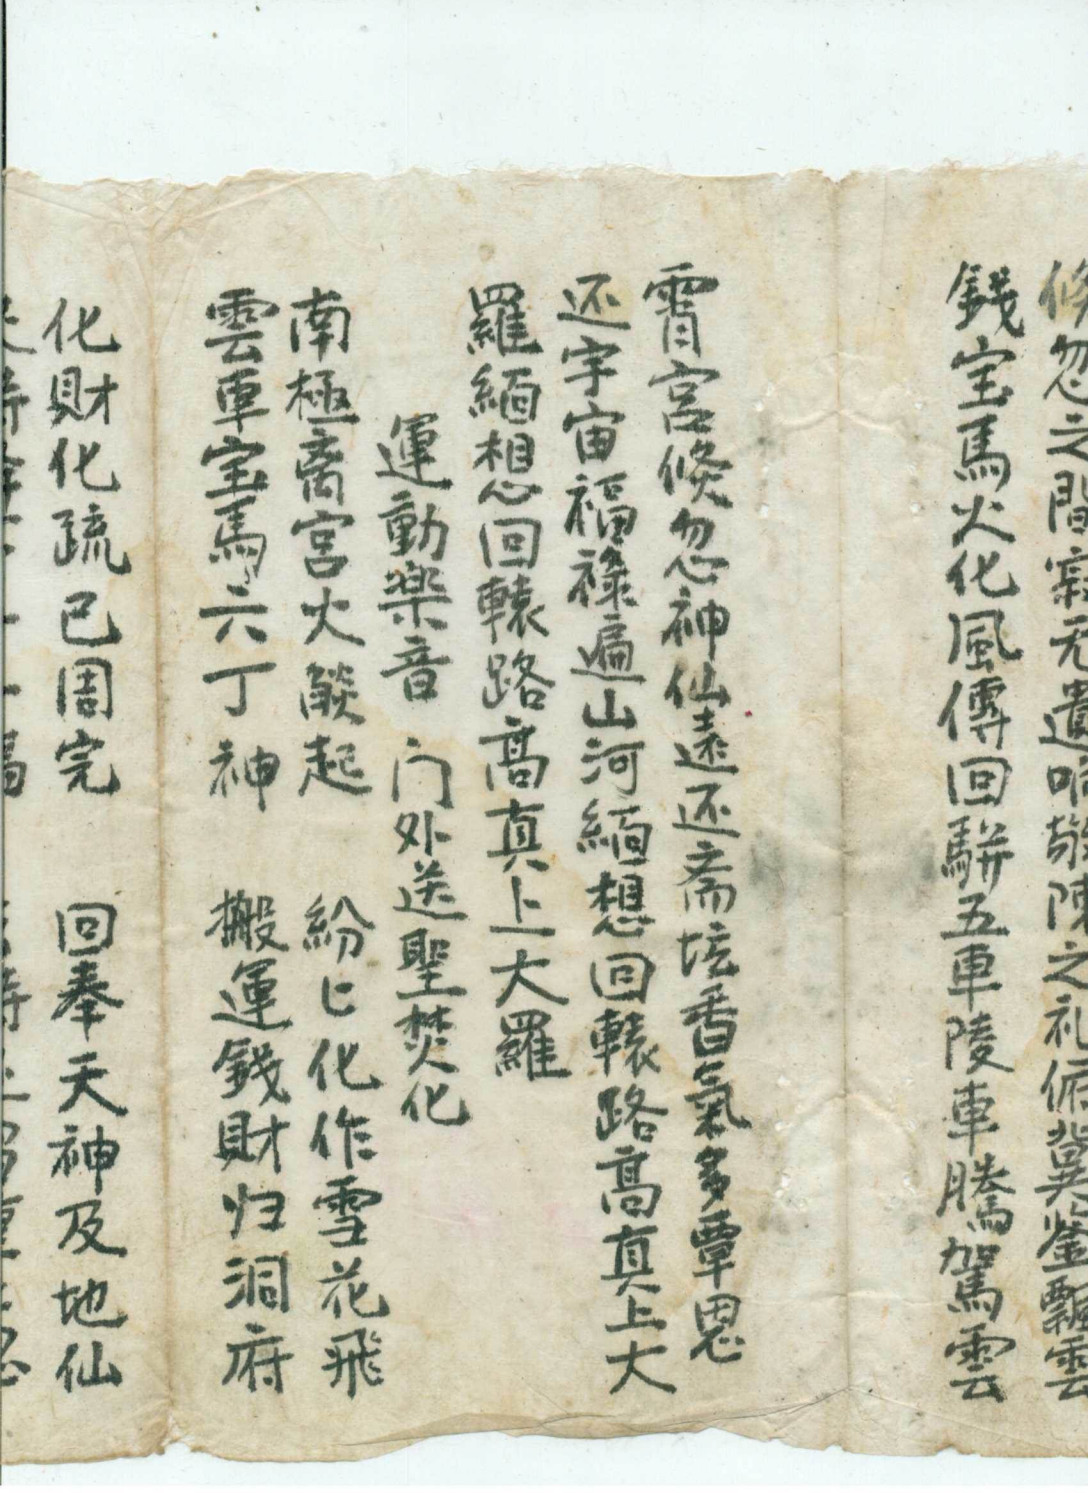 倏忽之間寂无遺响敬陳之礼俯冀鉴飄雲
錢宝馬火化風傳回駢五車陵車騰駕雲
霄宮倏忽神仙遠还斋坛香氣多覃恩
还宇宙福祿遍山河緬想回轅路高真上大
羅緬想回轅路高真上大羅
運動樂音 门外送聖焚化
南極离宮火燄起 紛匕化作雪花飛
雲車宝馬六丁神 搬運錢財归洞府
化財化疏已周完 回奉天神及地仙